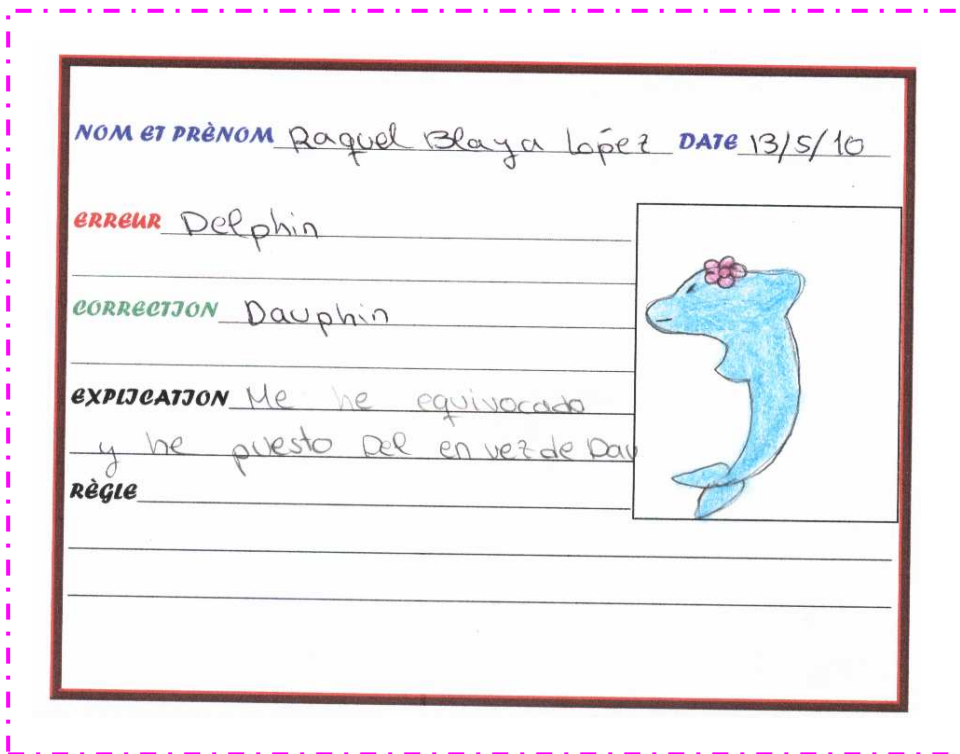 NOM ET PRÈNOM Raquel Blaya López DATE 13/5/10
ERREUR Delphin
CORRECTION Dauphin
EXPLICATION Me he equivocado
y he puesto Del en vez de Dau
RÈGLE